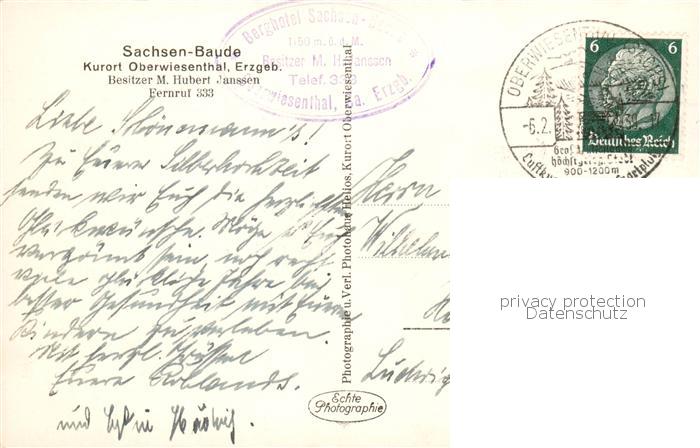 Sachsen-Baude
Kurort Oberwiesenthal, Erzgeb.
Besitzer M. Hubert Janssen
Fernruf 333
Berghotel Sachsen-Baude
Besitzer M. H. Janssen
Telef. 333
Oberwiesenthal, Sa. Erzgeb.
OBERWIESENTHAL
-6.2.
900-1200m
6 6
Deutsches Reich
Liebe
Zu Eurer Silberhochzeit
senden wir Euch die herzlichsten
Glückwünsche. Möge es Euch
vergönnt sein, noch recht
viele glückliche Jahre bei
bester Gesundheit mit Euren
Kindern zu verleben.
Mit herzl. Grüssen
Eure
und
Photographie u. Verl. Photohaus Helios, Kurort Oberwiesenthal
Echte
Photographie
Herrn
Wilhelm
Ludwig
privacy protection
Datenschutz